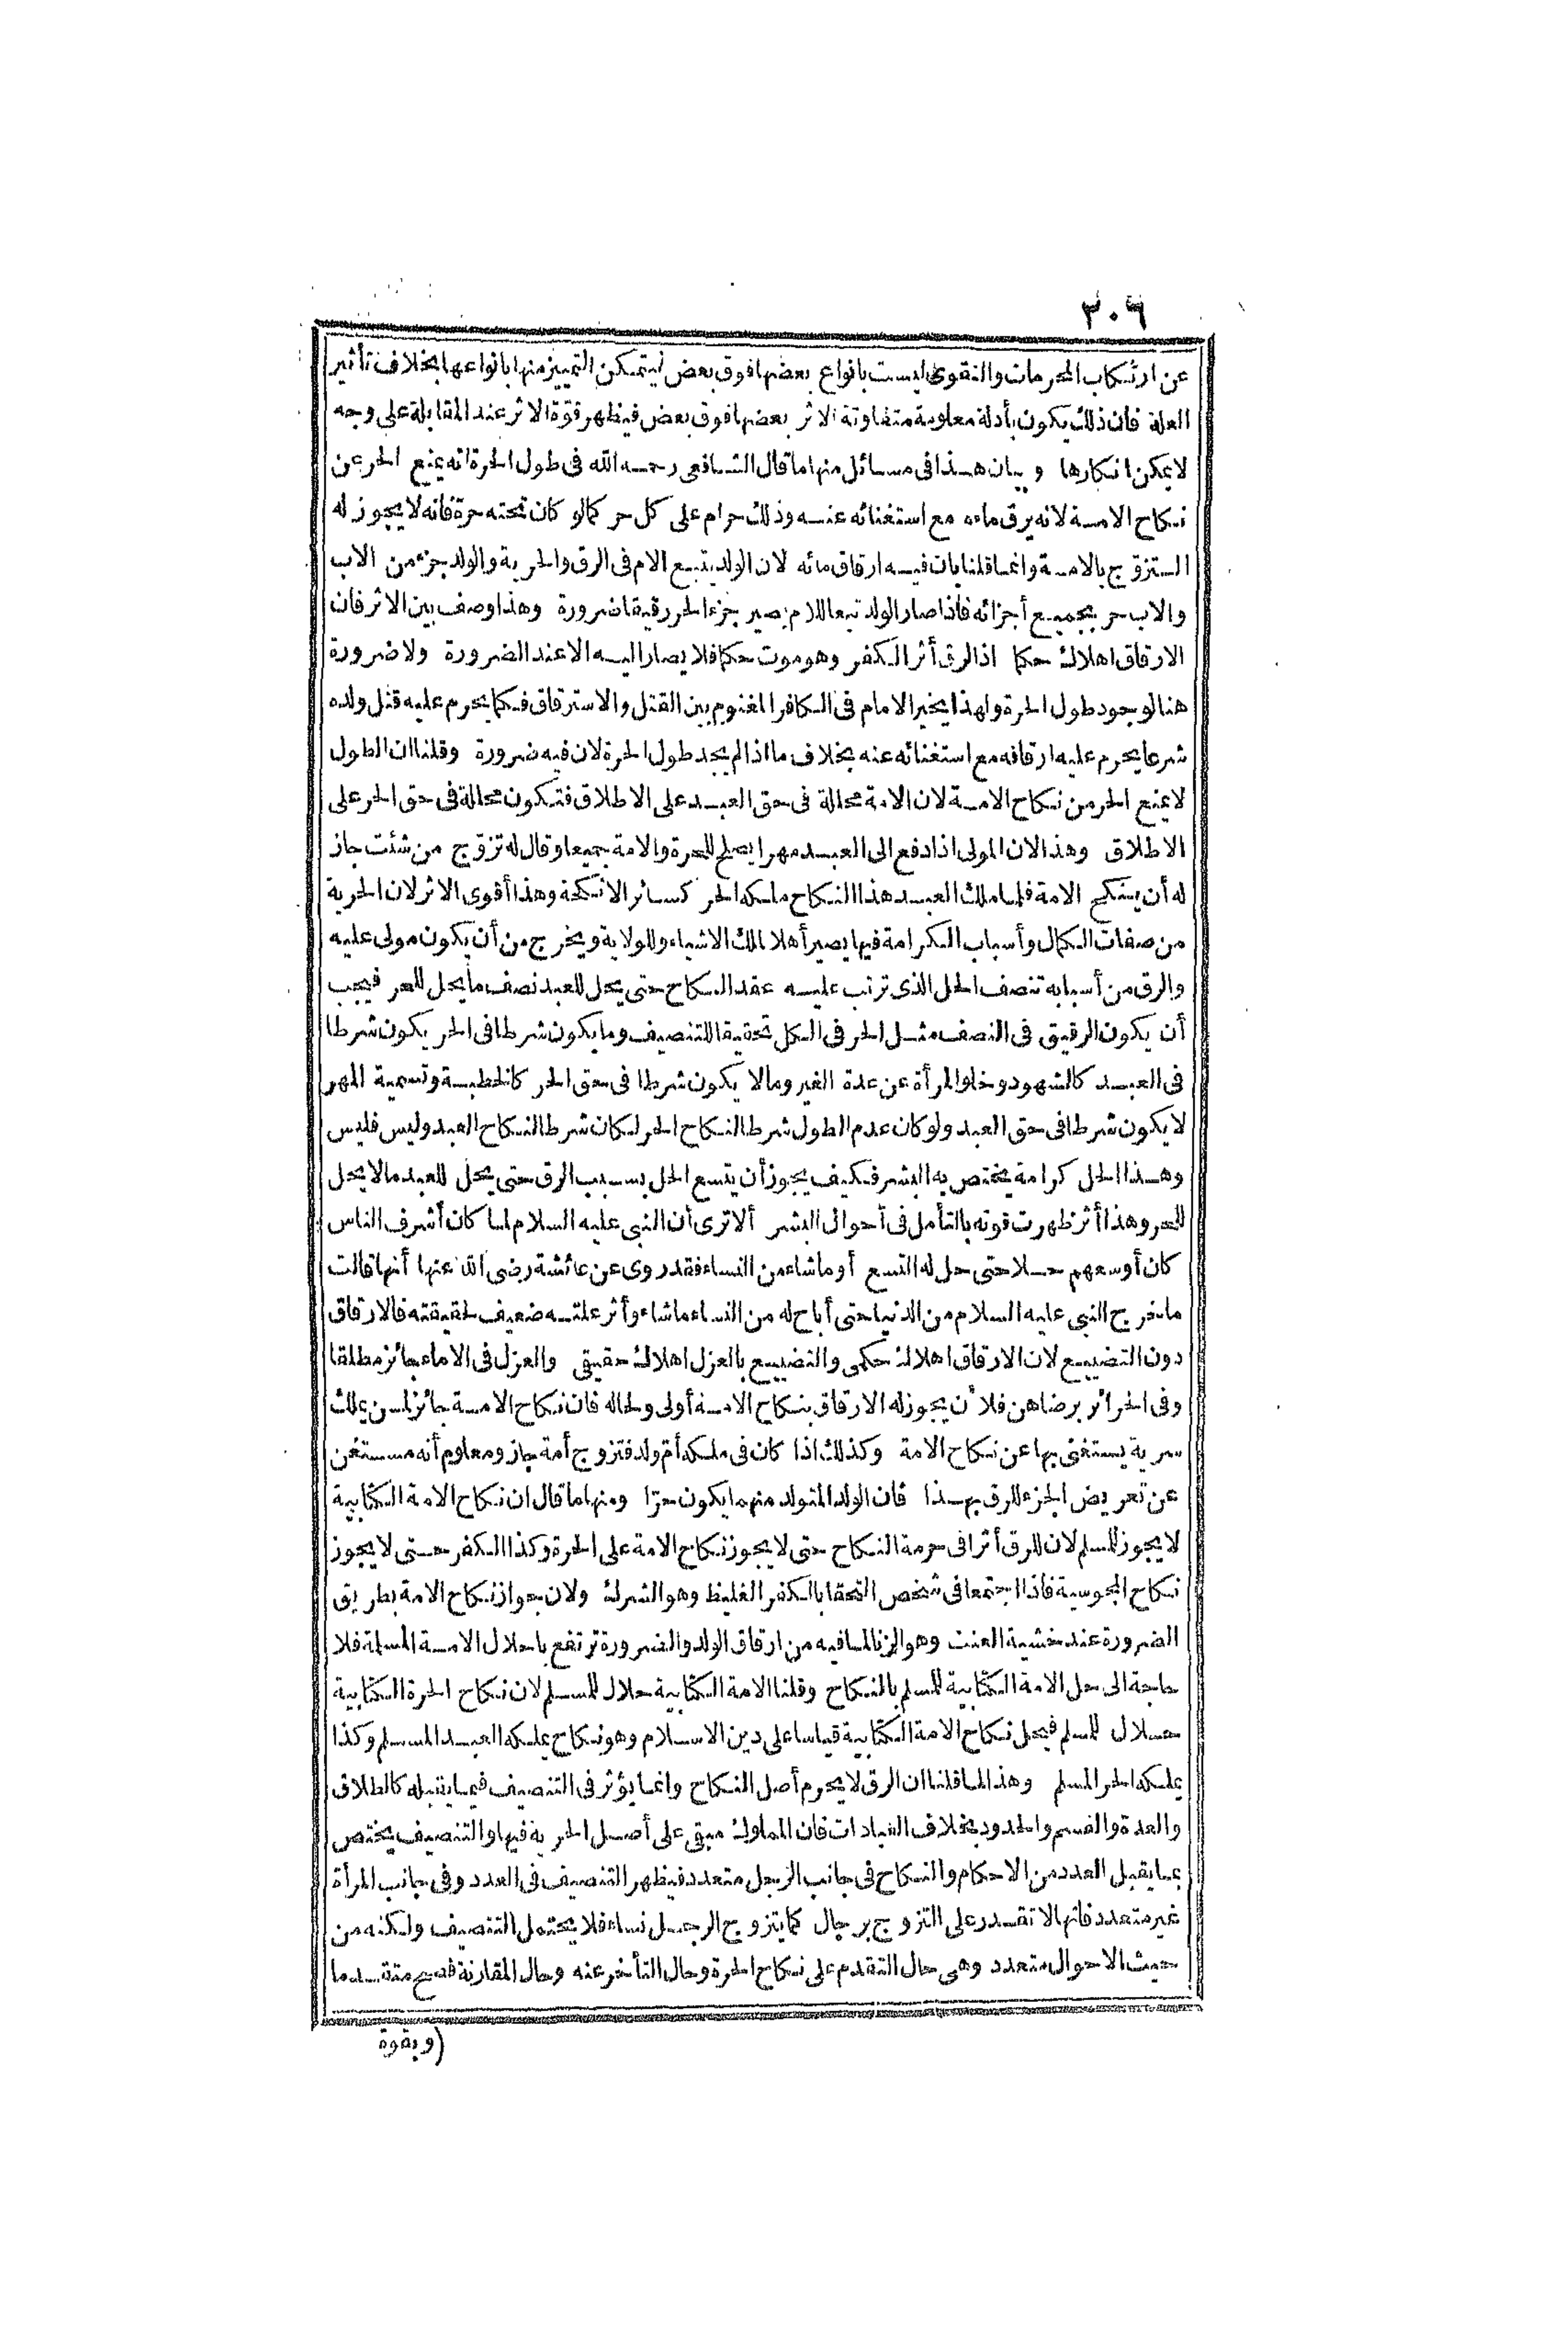 ٣٠٦
عن ارتكاب المحرمات والتقوى ليست بانواع بعضها فوق بعض فيتمكن التمييز منها بانواعها بخلاف تأثير
العلة فان ذلك يكون بأدلة معلومة متفاوتة الاثر بعضها فوق بعض فيظهر قوّة الاثر عند المقابلة على وجه
لا يمكن انكارها وبيان هذا فى مسائل منها ما قال الشافعى رحمه الله فى طول الحرة انه يمنع الحر عن
نكاح الامة لانه يرق ماءه مع استغنائه عنه وذلك حرام على كل حر كما لو كان تحته حرة فانه لا يجوز له
التزوّج بالامة وانما قلنا بان فيه ارقاق مائه لان الولد يتبع الام فى الرق والحرية والولد جزء من الاب
والاب حر بجميع أجزائه فاذا صار الولد تبعا للام يصير جزء الحر رقيقا ضرورة وهذا وصف بين الاثر فان
الارقاق اهلاك حكما اذ الرق أثر الكفر وهو موت حكما فلا يصار اليه الا عند الضرورة ولا ضرورة
هنا لوجود طول الحرة ولهذا يخير الامام فى الكافر المغنوم بين القتل والاسترقاق فكما يحرم عليه قتل ولده
شرعا يحرم عليه ارقاقه مع استغنائه عنه بخلاف ما اذا لم يجد طول الحرة لان فيه ضرورة وقلنا ان الطول
لا يمنع الحر من نكاح الامة لان الامة محللة فى حق العبد على الاطلاق فتكون محللة فى حق الحر على
الاطلاق وهذا لان المولى اذا دفع الى العبد مهرا يصلح للحرة والامة جميعا وقال له تزوّج من شئت جاز
له أن ينكح الامة فلما ملك العبد هذا النكاح ملكه الحر كسائر الانكحة وهذا أقوى الاثر لان الحرية
من صفات الكمال وأسباب الكرامة فبها يصير أهلا لملك الاشياء وللولاية ويخرج من أن يكون مولى عليه
والرق من أسبابه تنصف الحل الذى ترتب عليه عقد النكاح حتى يحل للعبد نصف ما يحل للحر فيجب
أن يكون الرقيق فى النصف مثل الحر فى الكل تحقيقا للتنصيف وما يكون شرطا فى الحر يكون شرطا
فى العبد كالشهود وخلو المرأة عن عدة الغير وما لا يكون شرطا فى حق الحر كالخطبة وتسمية المهر
لا يكون شرطا فى حق العبد ولو كان عدم الطول شرط النكاح الحر لكان شرط النكاح العبد وليس فليس
وهذا الحل كرامة يختص به البشر فكيف يجوز أن يتسع الحل بسبب الرق حتى يحل للعبد ما لا يحل
للحر وهذا أثر ظهرت قوته بالتأمل فى أحوال البشر ألا ترى أن النبى عليه السلام لما كان أشرف الناس
كان أوسعهم حلا حتى حل له التسع أو ما شاء من النساء فقد روى عن عائشة رضى الله عنها أنها قالت
ما خرج النبى عليه السلام من الدنيا حتى أباح له من النساء ما شاء وأثر علته ضعيف لحقيقته فالارقاق
دون التضييع لان الارقاق اهلاك حكمى والتضييع بالعزل اهلاك حقيقى والعزل فى الاماء جائز مطلقا
وفى الحرائر برضاهن فلأن يجوز له الارقاق بنكاح الامة أولى ولحاله فان نكاح الامة جائز لمن يملك
سرية يستغنى بها عن نكاح الامة وكذلك اذا كان فى ملكه أم ولد فتزوج أمة جاز ومعلوم أنه مستغن
عن تعريض الجزء للرق بهذا فان الولد المتولد منهما يكون حرّا ومنها ما قال ان نكاح الامة الكتابية
لا يجوز للمسلم لان للرق أثرا فى حرمة النكاح حتى لا يجوز نكاح الامة على الحرة وكذا الكفر حتى لا يجوز
نكاح المجوسية فاذا اجتمعا فى شخص التحقا بالكفر الغليظ وهو الشرك ولان جواز نكاح الامة بطريق
الضرورة عند خشية العنت وهو الزنا لما فيه من ارقاق الولد والضرورة ترتفع باحلال الامة المسلمة فلا
حاجة الى حل الامة الكتابية للمسلم بالنكاح وقلنا الامة الكتابية حلال للمسلم لان نكاح الحرة الكتابية
حلال للمسلم فيحل نكاح الامة الكتابية قياسا على دين الاسلام وهو نكاح يملكه العبد المسلم وكذا
يملكه الحر المسلم وهذا لما قلنا ان الرق لا يحرم أصل النكاح وانما يؤثر فى التنصيف فيما يقبله كالطلاق
والعدة والقسم والحدود بخلاف العبادات فان المملوك مبقى على أصل الحرية فيها والتنصيف يختص
بما يقبل العدد من الاحكام والنكاح فى جانب الرجل متعدد فيظهر التنصيف فى العدد وفى جانب المرأة
غير متعدد فانها لا تقدر على التزوج برجال كما يتزوج الرجل نساء فلا يحتمل التنصيف ولكنه من
حيث الاحوال متعدد وهى حال التقدم على نكاح الحرة وحال التأخر عنه وحال المقارنة فصح متقدما
(وبقوة